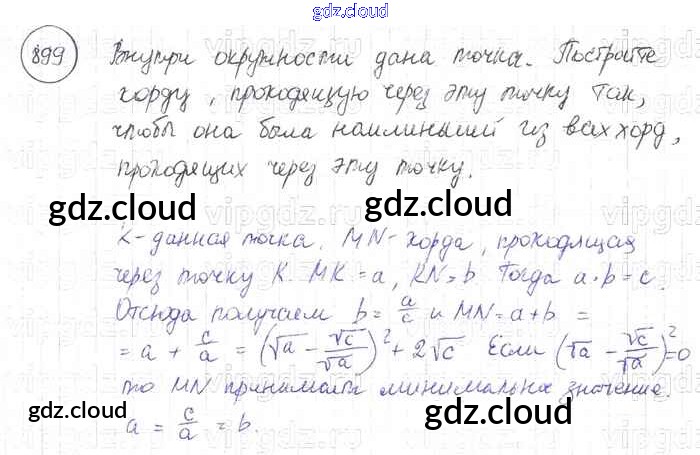 gdz.cloud
899 Внутри окружности дана точка. Постройте
хорду, проходящую через эту точку так,
чтобы она была наименьшей из всех хорд,
проходящих через эту точку.
gdz.cloud gdz.cloud
K - данная точка, MN - хорда, проходящая
через точку K. MK = a, KN = b. Тогда a·b = c.
Отсюда получаем b = a/c и MN = a + b =
= a + c/a = (√a - √c/√a)² + 2√c Если (√a - √c/√a)² = 0
то MN принимает минимальное значение.
gdz.cloud gdz.cloud
a = c/a = b.